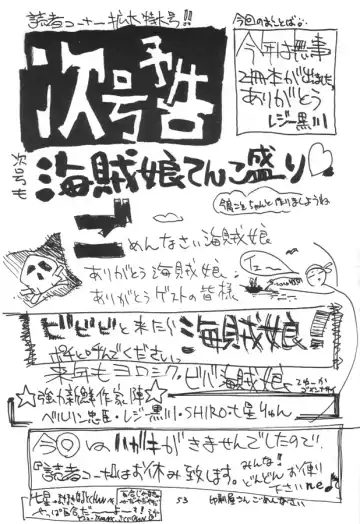 読者コーナー拡大特大号!!
今回のおことば
今年は無事
2冊本が出ました。
ありがとう
レジー黒川
次号予告
次号も
海賊娘てんこ盛り♡
ごめんなさい海賊娘
ありがとう海賊娘
ありがとうゲストの皆様
ビビビと来たら海賊娘
と呼んでください。
来年もヨロシク・ビバ海賊娘
☆強力新鮮作家陣☆
ベルリン忠臣・レジー黒川・SHIRO・七星りゅん
今回はハガキがきませんでしたので、
『読者コーナー』はお休み致します。
みんな!
どんどんお便り
下さいne♪
53
印刷屋さんごめんなさい